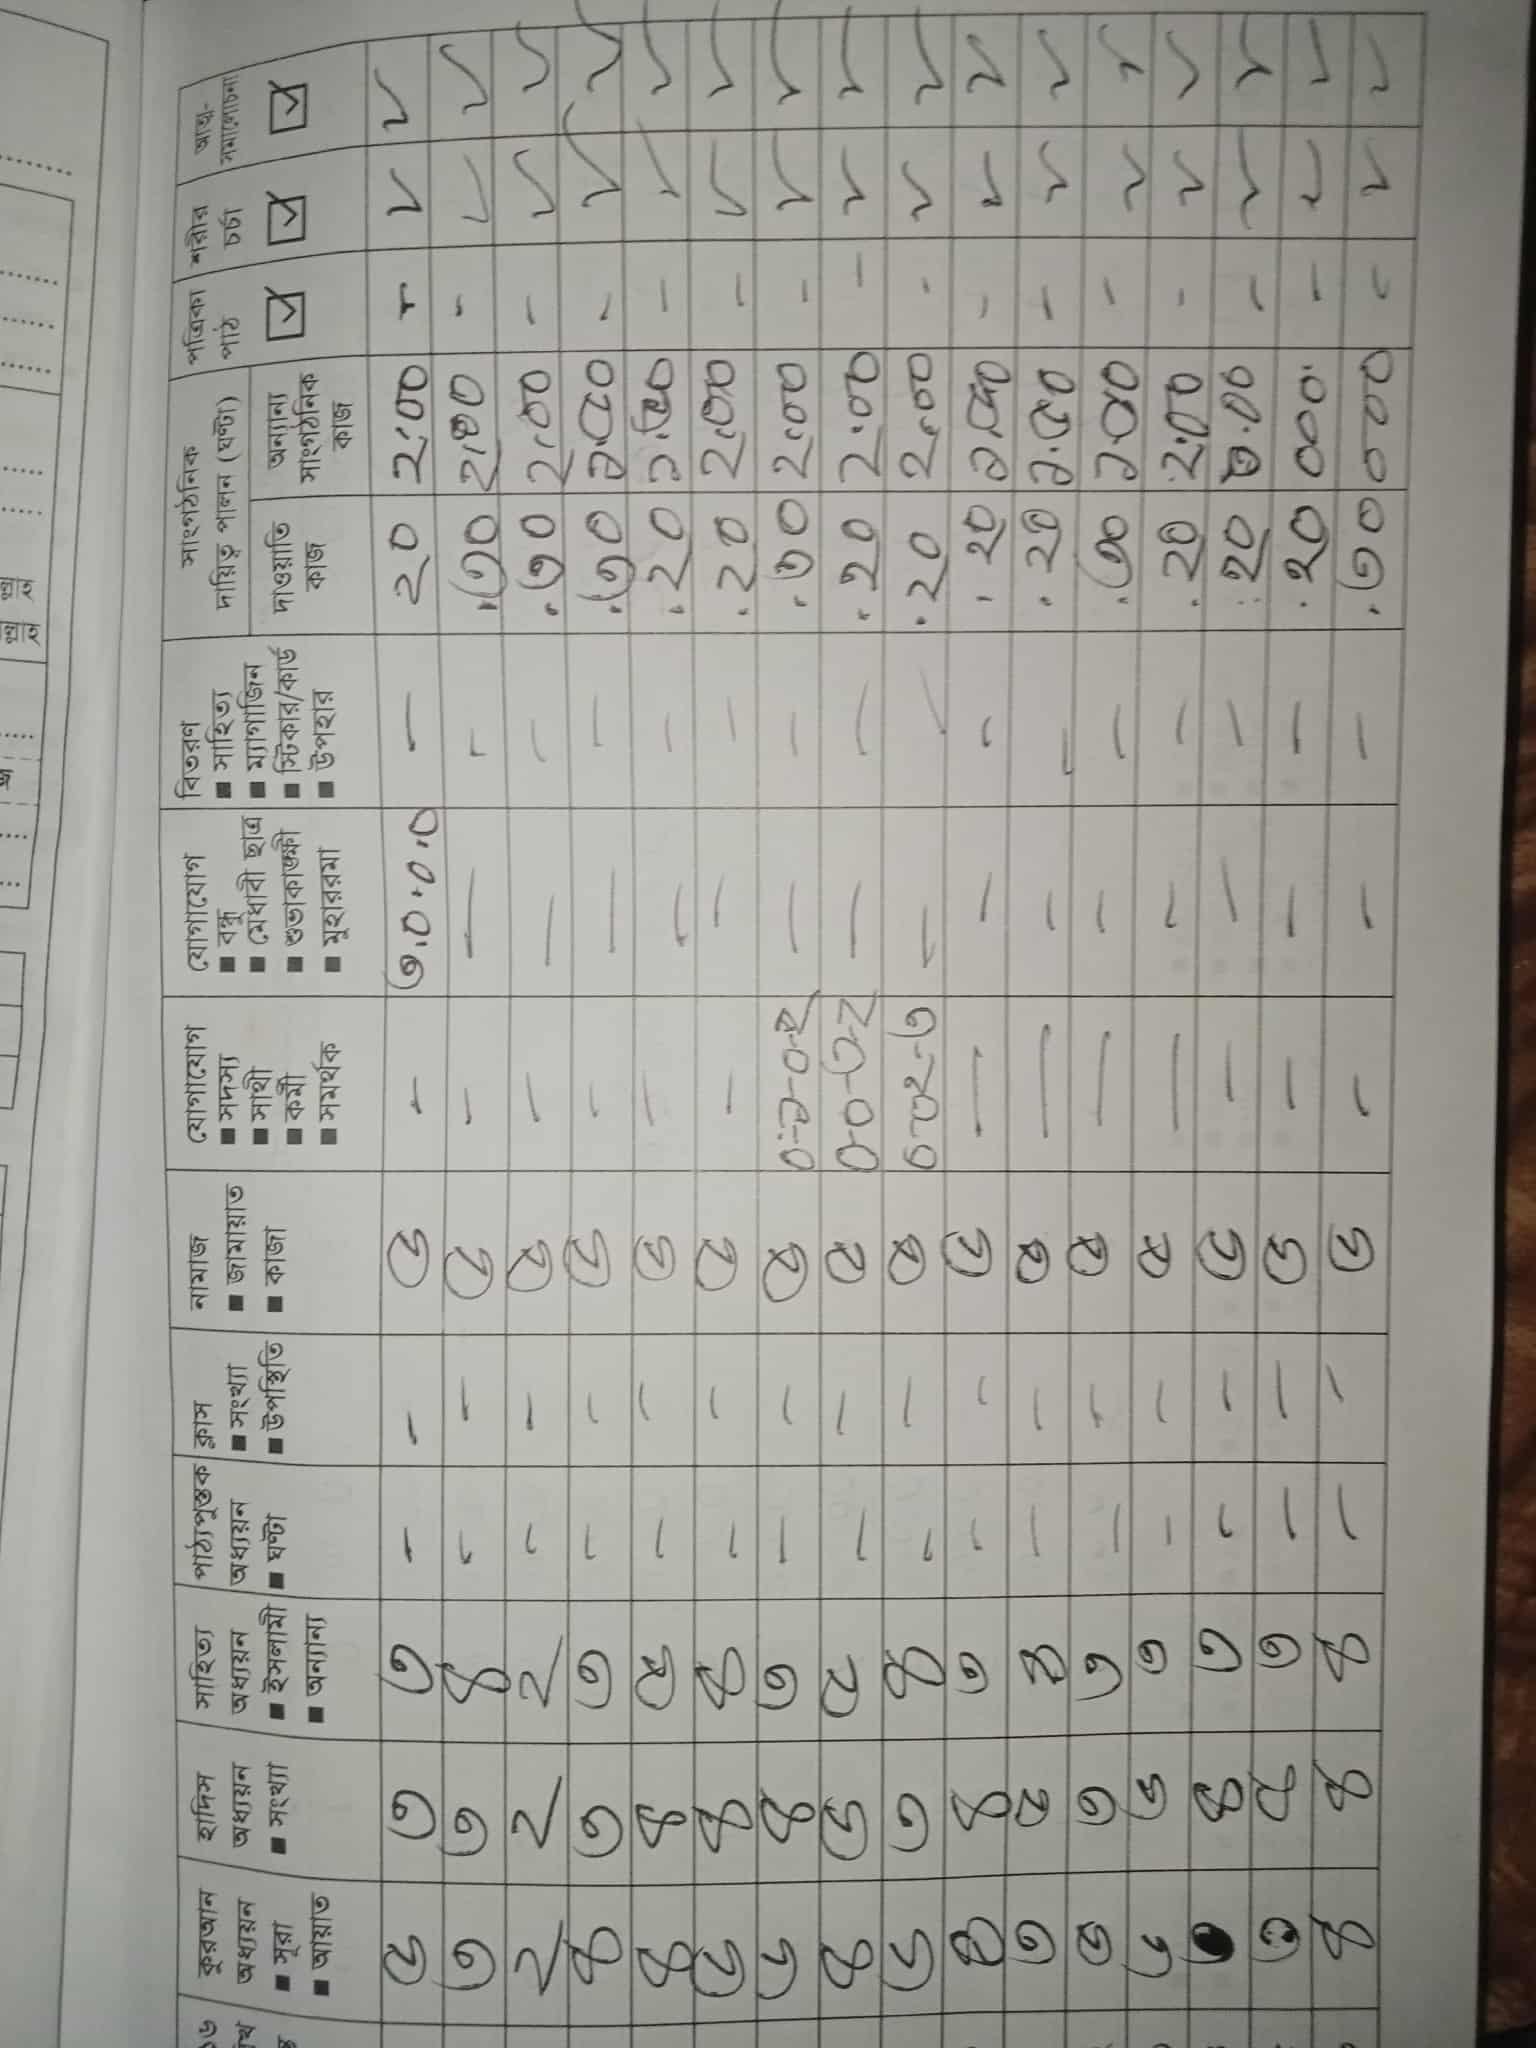 কুরআন অধ্যয়ন ■ সূরা ■ আয়াত
হাদিস অধ্যয়ন ■ সংখ্যা
সাহিত্য অধ্যয়ন ■ ইসলামী ■ অন্যান্য
পাঠ্যপুস্তক অধ্যয়ন ■ ঘণ্টা
ক্লাস ■ সংখ্যা ■ উপস্থিতি
নামাজ ■ জামায়াত ■ কাজা
যোগাযোগ ■ সদস্য ■ সাথী ■ কর্মী ■ সমর্থক
যোগাযোগ ■ বন্ধু ■ মেধাবী ছাত্র ■ শুভাকাঙ্ক্ষী ■ মুহাররমা
বিতরণ ■ সাহিত্য ■ ম্যাগাজিন ■ স্টিকার/কার্ড ■ উপহার
সাংগঠনিক দায়িত্ব পালন (ঘণ্টা)
দাওয়াতি কাজ
অন্যান্য সাংগঠনিক কাজ
পত্রিকা পাঠ
শরীর চর্চা
আত্ম-সমালোচনা
৫ ৩ ৩ - - ৫ - ৩.০.০.০ - ২০ ২:০০ - ✓ ✓
৩ ৩ ৪ - - ৫ - - - .৩০ ২.০০ - ✓ ✓
২ ২ ২ - - ৫ - - - .৩০ ২.০০ - ✓ ✓
৪ ৩ ৩ - - ৫ - - - .৩০ - ✓ ✓
৪ ৪ ৫ - - ৫ - - - .২০ - ✓ ✓
৫ ৪ ৪ - - ৫ - - - .২০ ২.০০ - ✓ ✓
৫ ৪ ৩ - - ৫ - - .৩০ ২.০০ - ✓ ✓
৪ ৫ ৫ - - ৫ ০-০-৩-২ - - .২০ ২.০০ - ✓ ✓
৫ ৩ ৪ - - ৫ ০-০২-৩ - - .২০ ২.০০ - ✓ ✓
৪ ৪ ৩ - - ৫ - - - .২০ - ✓ ✓
৩ ৫ ৪ - - ৫ - - - .২০ - ✓ ✓
৫ ৩ ৩ - - ৫ - - - .৩০ - ✓ ✓
৫ ৫ ৩ - - ৫ - - - .২০ ২.০০ - ✓ ✓
৪ ৩ - - ৫ - - - .২০ - ✓ ✓
৩ ৪ ৩ - - ৫ - - - .২০ ০০০ - ✓ ✓
৪ ৪ ৪ - - ৫ - - - .৩০ ০০০ - ✓ ✓